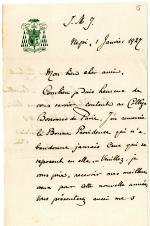 5
J. M. J.
Nepi, 1 Janvier 1927
Mon bien cher ami,
Combien je suis heureux de
vous savoir content au Collège
de Paris. J'en remercie
la Bonne Providence qui n'a-
bandonne jamais ceux qui se
reposent en elle. Veuillez, je
vous prie, recevoir mes meilleurs
vœux pour cette nouvelle année,
les présenter aussi